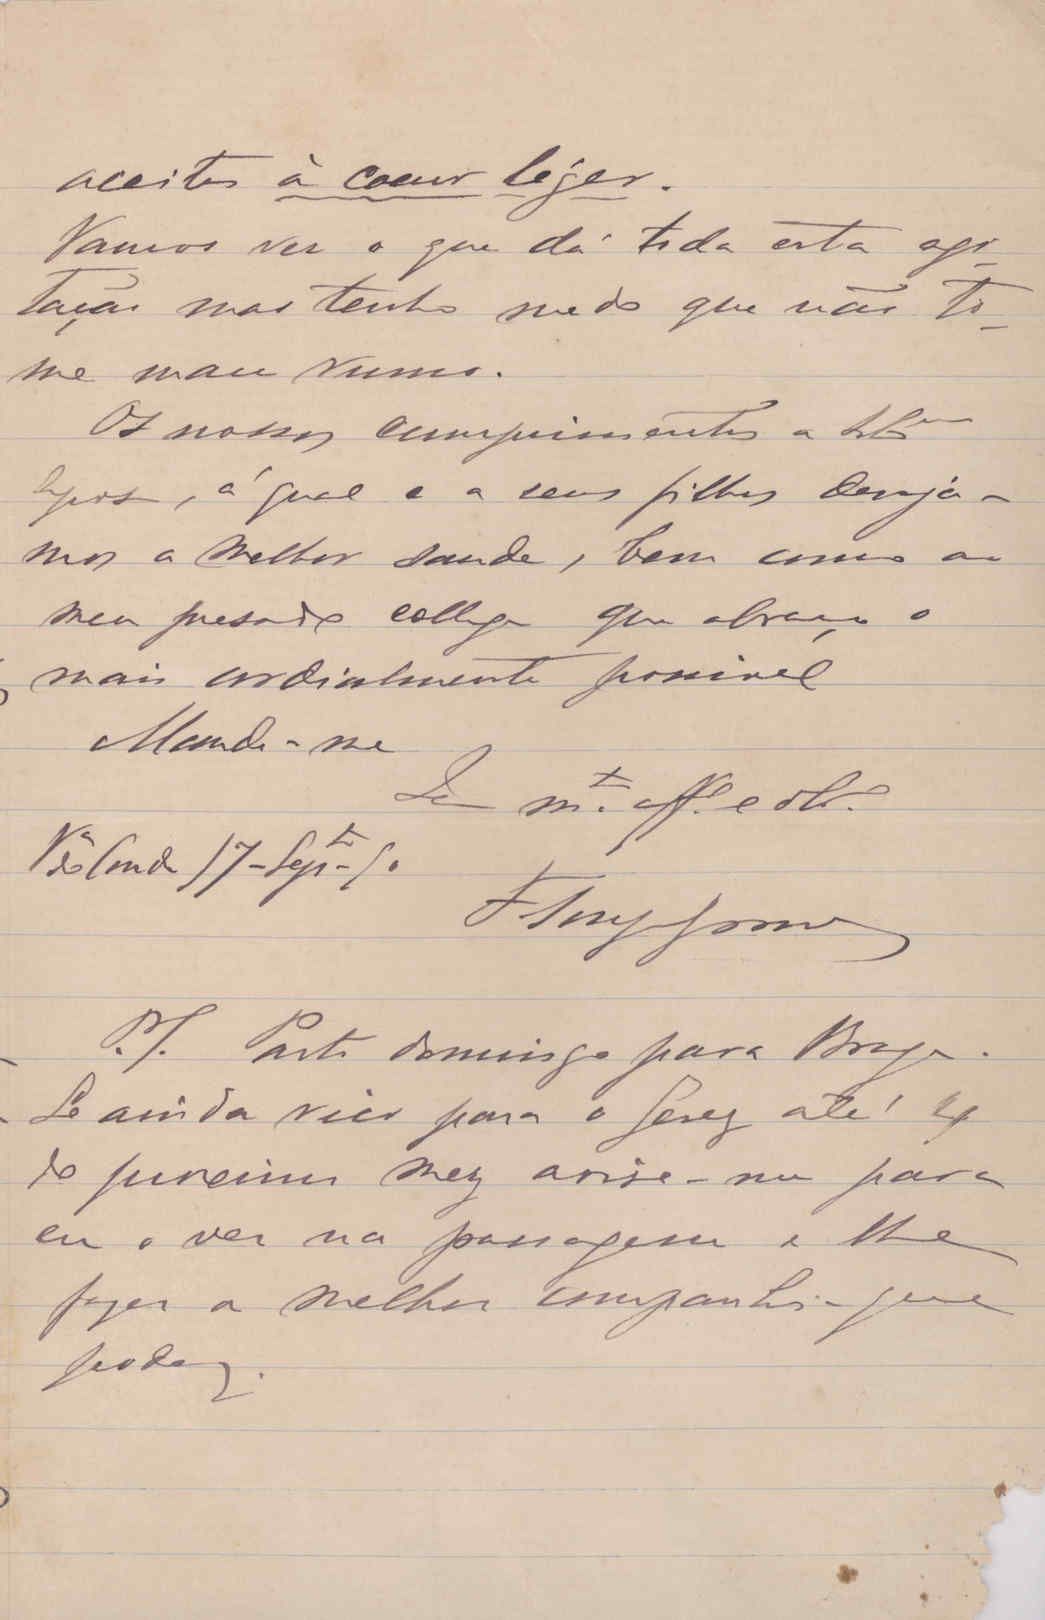 aceites à coeur léger.
Vamos ver o que dá toda esta agi-
tação mas tenho medo que não to-
me mau rumo.
Os nossos cumprimentos a
Espos, á qual e a seus filhos deseja-
mos a melhor saude, bem como ao
meu presado collega que abraço o
mais cordialmente possivel
Mande-me
De m.to aff.o e obr.o
V.a do Conde 17-Sept-90
P.S. Parto domingo para Braga.
Se ainda vier para o Gerez até
do proximo mez avise-me para
eu o ver na passagem e lhe
fazer a melhor companhia que
poder.